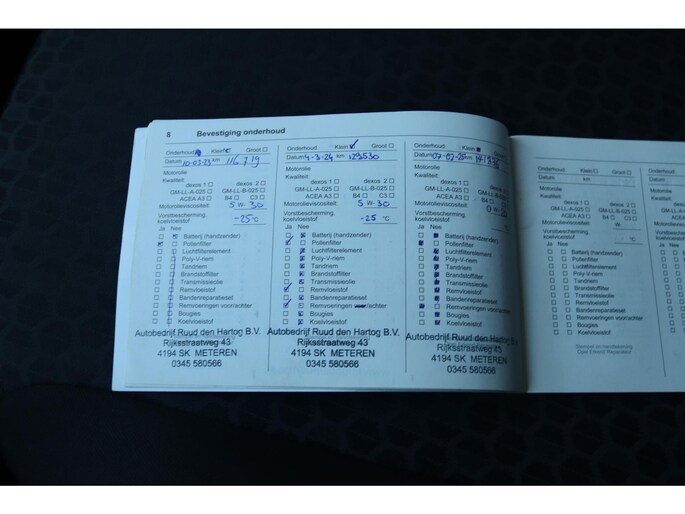 8 Bevestiging onderhoud
Onderhoud: Klein Groot
Datum 10-03-23 km 116.719
Motorolie
Kwaliteit:
dexos 1 dexos 2
GM-LL-A-025 GM-LL-B-025
ACEA A3 B4 C3
Motorolieviscositeit: 5 W- 30
Vorstbescherming, koelvloeistof -25 °C
Ja Nee
Batterij (handzender)
Pollenfilter
Luchtfilterelement
Poly-V-riem
Tandriem
Brandstoffilter
Transmissieolie
Remvloeistof
Bandenreparatieset
Remvoeringen voor/achter
Bougies
Koelvloeistof
Autobedrijf Ruud den Hartog B.V.
Rijksstraatweg 43
4194 SK METEREN
0345 580566
Onderhoud: Klein Groot
Datum 4-3-24 km 129530
Motorolie
Kwaliteit:
dexos 1 dexos 2
GM-LL-A-025 GM-LL-B-025
ACEA A3 B4 C3
Motorolieviscositeit: 5 W- 30
Vorstbescherming, koelvloeistof -25 °C
Ja Nee
Batterij (handzender)
Pollenfilter
Luchtfilterelement
Poly-V-riem
Tandriem
Brandstoffilter
Transmissieolie
Remvloeistof
Bandenreparatieset
Remvoeringen voor/achter
Bougies
Koelvloeistof
Autobedrijf Ruud den Hartog B.V.
Rijksstraatweg 43
4194 SK METEREN
0345 580566
Onderhoud: Klein
Datum km
Motorolie
Kwaliteit:
dexos 1
GM-LL-A-025
ACEA A3
Motorolieviscositeit: 0
Vorstbescherming, koelvloeistof
Ja Nee
Batterij (handzender)
Pollenfilter
Luchtfilterelement
Poly-V-riem
Tandriem
Brandstoffilter
Transmissieolie
Remvloeistof
Bandenreparatieset
Remvoeringen voor/achter
Bougies
Koelvloeistof
Autobedrijf Ruud den Hartog B.V.
Rijksstraatweg 43
4194 SK METEREN
0345 580566
Onderhoud: Klein Groot
Datum: km
Motorolie
Kwaliteit:
dexos 1 dexos 2
GM-LL-A-025 GM-LL-B-025
ACEA A3 B4 C3
Motorolieviscositeit: W-
Vorstbescherming, koelvloeistof °C
Ja Nee
Batterij (handzender)
Pollenfilter
Luchtfilterelement
Poly-V-riem
Tandriem
Brandstoffilter
Transmissieolie
Remvloeistof
Bandenreparatieset
Remvoeringen voor/achter
Bougies
Koelvloeistof
Stempel en handtekening
Opel Erkend Reparateur